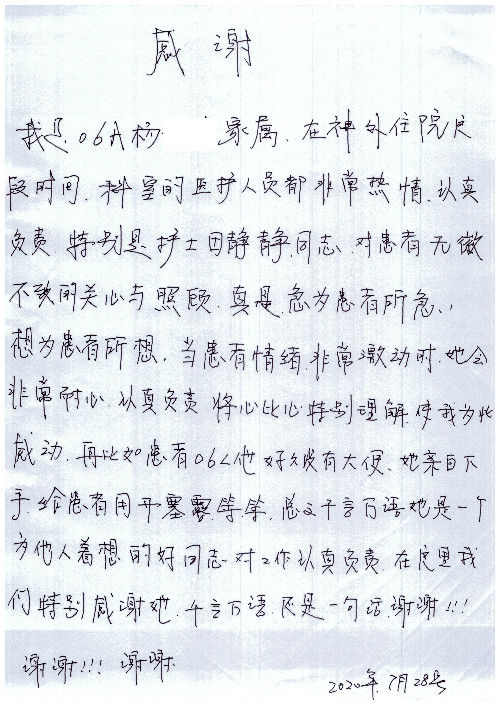 感谢
我是06A杨 家属.在神外住院这
段时间.科室的医护人员都非常热情.认真
负责.特别是护士田静静.同志.对患者无微
不致的关心与照顾.真是急为患者所急.,
想为患者所想.当患者情绪.非常激动时.她会
非常耐心.认真负责 将心比心特别理解.使我为此
感动.再比如患者06人他好久没有大便.她亲自下
手给患者用开塞露.等等.总之千言万语她是一个
为他人着想的好同志.对工作认真负责.在这里我
们特别感谢她.千言万语.还是一句话.谢谢!!!
谢谢!!! 谢谢.
2020年.7月28号